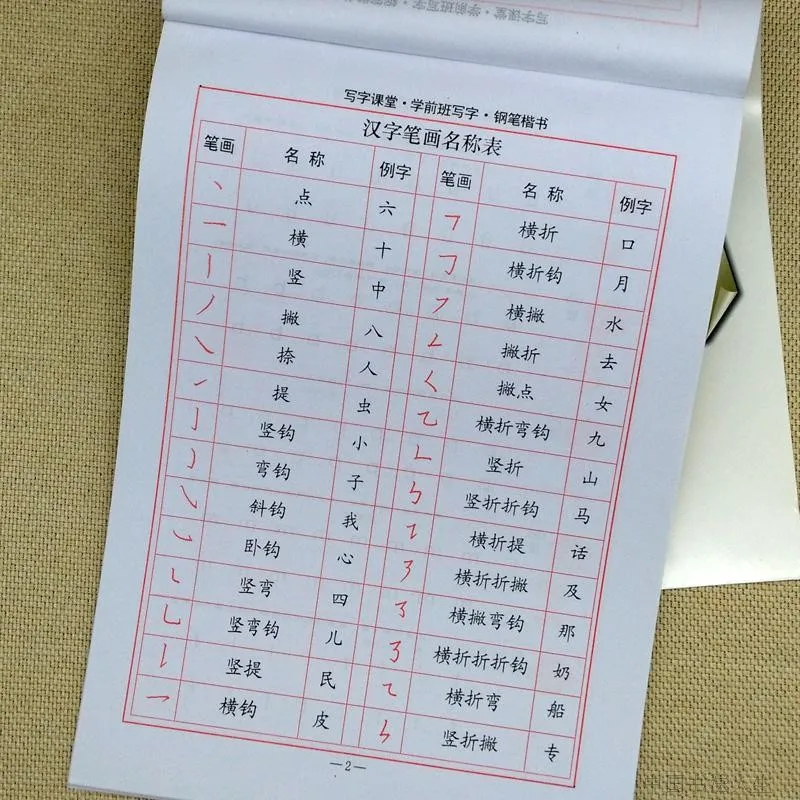 写字课堂·学前班写字·钢笔楷书
汉字笔画名称表
笔画 名称 例字 笔画 名称 例字
丶 点 六 ㇕ 横折 口
一 横 十 ㇆ 横折钩 月
丨 竖 中 ㇇ 横撇 水
丿 撇 八 ㇜ 撇折 去
㇏ 捺 人 ㇛ 撇点 女
㇀ 提 虫 ㇈ 横折弯钩 九
亅 竖钩 小 ㇗ 竖折 山
㇁ 弯钩 子 ㇉ 竖折折钩 马
㇂ 斜钩 我 ㇊ 横折提 话
㇃ 卧钩 心 ㇋ 横折折撇 及
㇄ 竖弯 四 ㇌ 横撇弯钩 那
㇟ 竖弯钩 儿 ㇡ 横折折折钩 奶
㇙ 竖提 民 ㇍ 横折弯 船
㇖ 横钩 皮 ㇞ 竖折撇 专
—2—